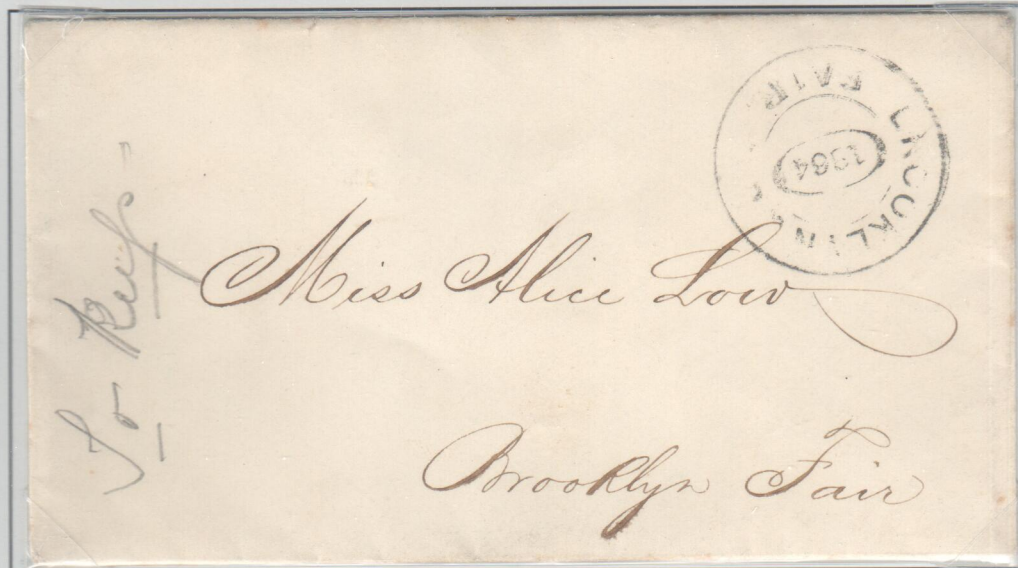 BROOKLYN
FAIR
1864
Miss Alice Low
Brooklyn Fair
To Keep